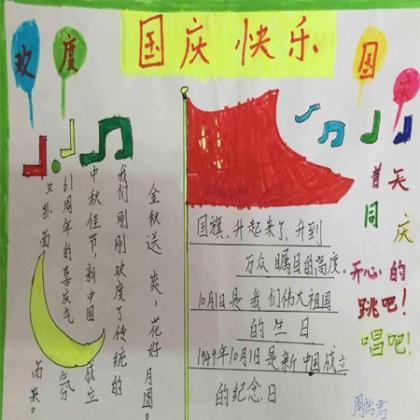 国庆快乐
欢度国庆
金秋送爽,花好月圆。
我们刚刚欢度了传统的
中秋佳节,新中国成立
61周年的喜庆气氛
又扑面而来。
国旗,升起来了,升到
万众瞩目的高度。
10月1日是我们伟大祖国
的生日
1949年10月1日是新中国成立
的纪念日
普天
同庆
开心的
跳吧!
唱吧!